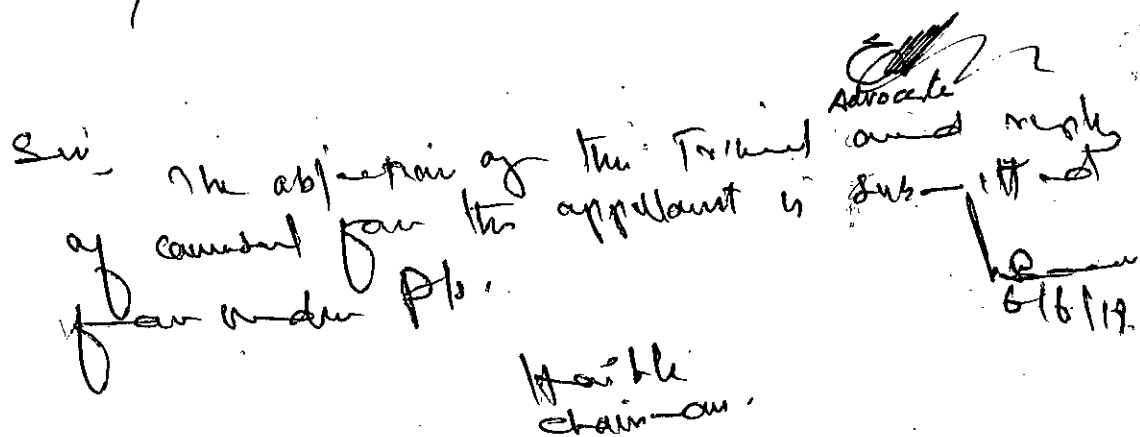 Advocate
Sir, The objection of this Tribunal and reply
of counsel for the appellant is submitted
for order Pls.
6/6/19
Hon'ble
Chairman.